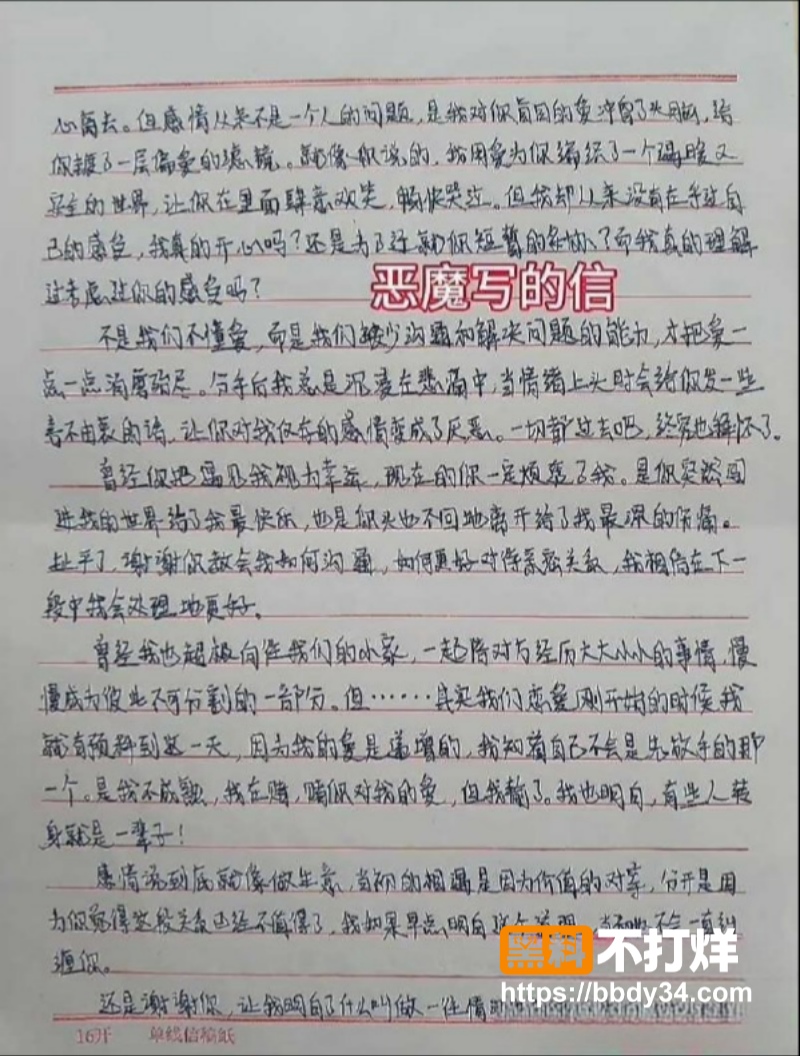 心离去。但感情从来不是一个人的问题，是我对你盲目的爱冲昏了头脑，给
你镀了一层偏爱的滤镜。就像你说的，我用爱为你编织了一个温暖又
安全的世界，让你在里面肆意欢笑，畅快哭泣。但我却从来没有在乎过自
己的感色，我真的开心吗？还是为了迁就你短暂的
而我真的理解
过考虑过你的感色吗？
恶魔写的信
不是我们不懂爱，而是我们缺少沟通和解决问题的能力，才把爱一
点一点消磨殆尽。分手后我总是沉浸在悲痛中，当情绪上头时会给你发一些
言不由衷的话，让你对我仅存的感情变成了厌恶。一切都过去吧，终究也释怀了。
曾经你把遇见我视为幸运，现在的你一定烦透了我。是你突然闯
进我的世界给了我最快乐，也是你头也不回地离开给了我最深的伤痛。
扯平了，谢谢你教会我如何沟通，如何更好对待亲密关系，我相信在下一
段中我会处理地更好。
曾经我也超级向往我们的小家，一起陪对方经历大大小小的事情，慢
慢成为彼此不可分割的一部分。但……其实我们恋爱刚开始的时候我
就有预料到这一天，因为我的爱是递增的，我知道自己不会是先放手的那
一个。是我不成熟，我在赌，赌你对我的爱，但我输了。我也明白，有些人转
身就是一辈子！
感情说到底就像做生意，当初的相遇是因为价值的对等，分开是因
为你觉得这段关系已经不值得了，我如果早点明白这个道理，当初也不会一直纠
缠你。
还是谢谢你，让我明白了什么叫做一往情
黑料不打烊
https://bbdy34.com
16开 单线信稿纸